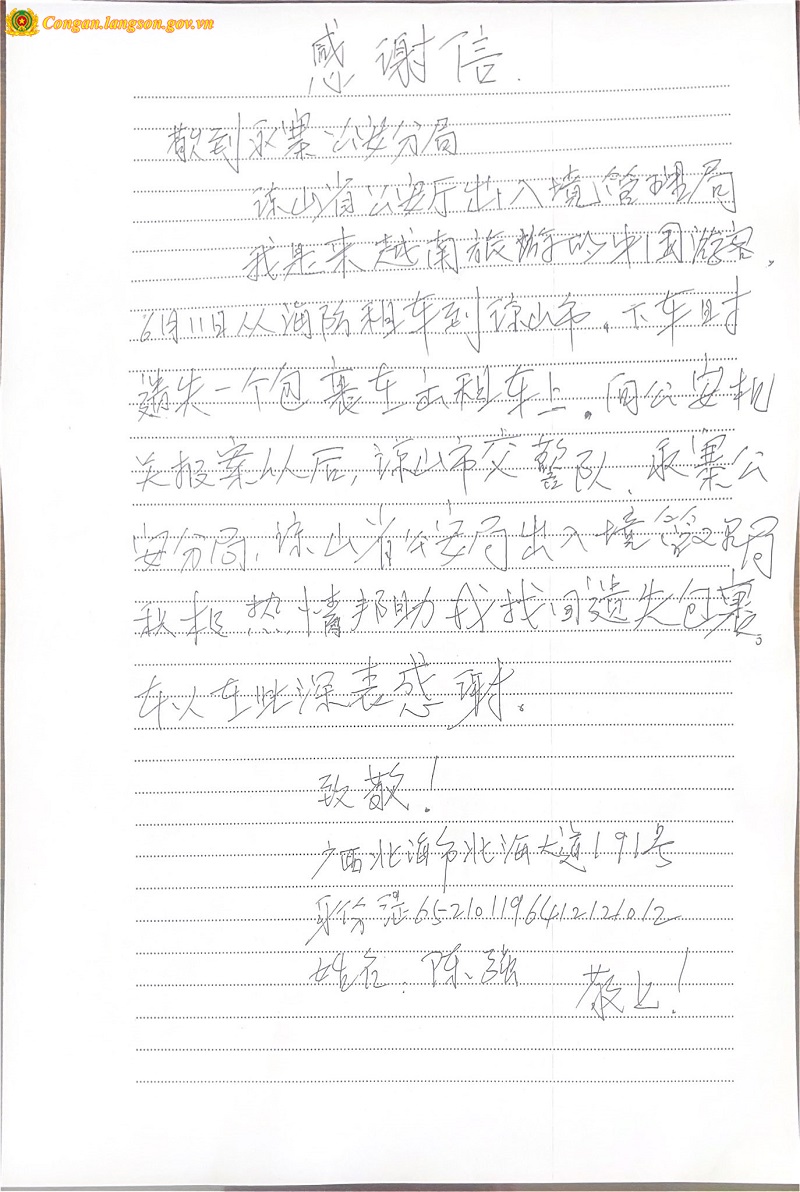 Congan.langson.gov.vn
感谢信.
敬到永寨公安分局
谅山省公安厅出入境管理局
我是来越南旅游的中国游客,
6月11日从海防租车到谅山市,下车时
遗失一个包裹在出租车上。向公安机
关报案以后,谅山市交警队、永寨公
安分局,谅山省公安局出入境管理局
积极热情帮助我找回遗失包裹。
本人在此深表感谢。
致敬!
广西北海市北海大道191号
身份证652101196412121012
姓名:陈强
敬上!